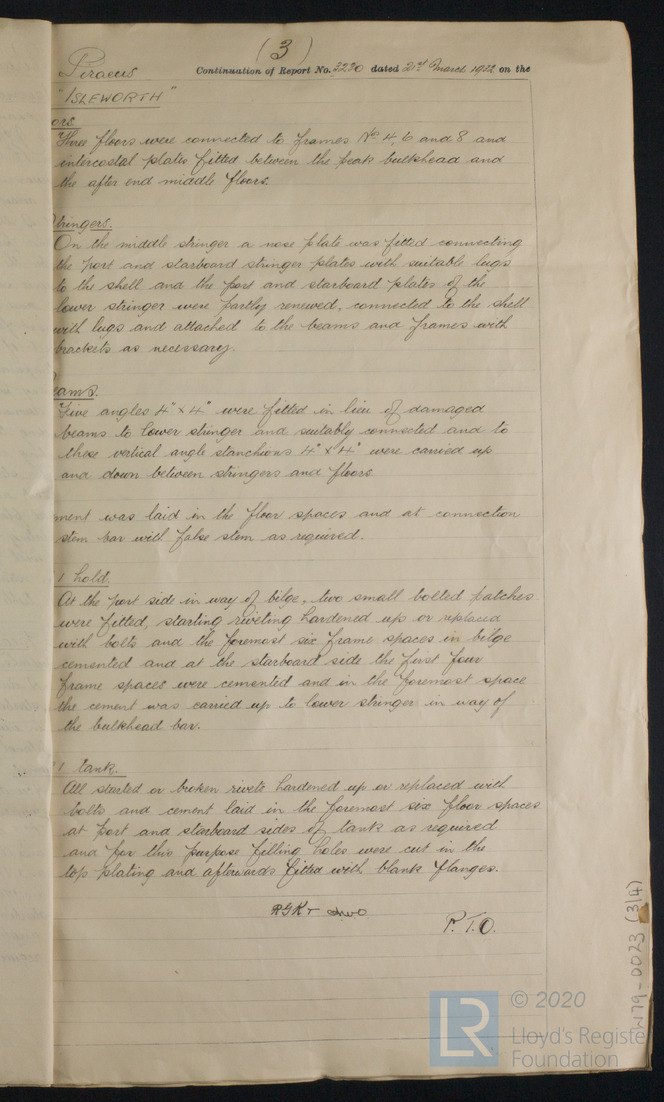 (3)
Piraeus Continuation of Report No. 3230 dated 21st March 1922 on the
"ISLEWORTH"
ors
Three floors were connected to frames Nos 4, 6 and 8 and
intercostal plates fitted between the peak bulkhead and
the after end middle floors.
tringers.
On the middle stringer a nose plate was fitted connecting
the port and starboard stringer plates with suitable lugs
to the shell and the port and starboard plates of the
lower stringer were partly renewed, connected to the shell
with lugs and attached to the beams and frames with
brackets as necessary.
eams.
Five angles 4" x 4" were fitted in lieu of damaged
beams to lower stringer and suitably connected and to
these vertical angle stanchions 4" x 4" were carried up
and down between stringers and floors.
ment was laid in the floor spaces and at connection
stem bar with false stem as required.
1 hold.
At the port side in way of bilge, two small bolted patches
were fitted, starting riveting hardened up or replaced
with bolts and the foremost six frame spaces in bilge
cemented and at the starboard side the first four
frame spaces were cemented and in the foremost space
the cement was carried up to lower stringer in way of
the bulkhead bar.
1 tank.
All started or broken rivets hardened up or replaced with
bolts and cement laid in the foremost six floor spaces
at port and starboard sides of tank as required
and for this purpose filling holes were cut in the
top plating and afterwards fitted with blank flanges.
P.T.O.
W79-0023 (3/4)
LR © 2020
Lloyd's Registe
Foundation